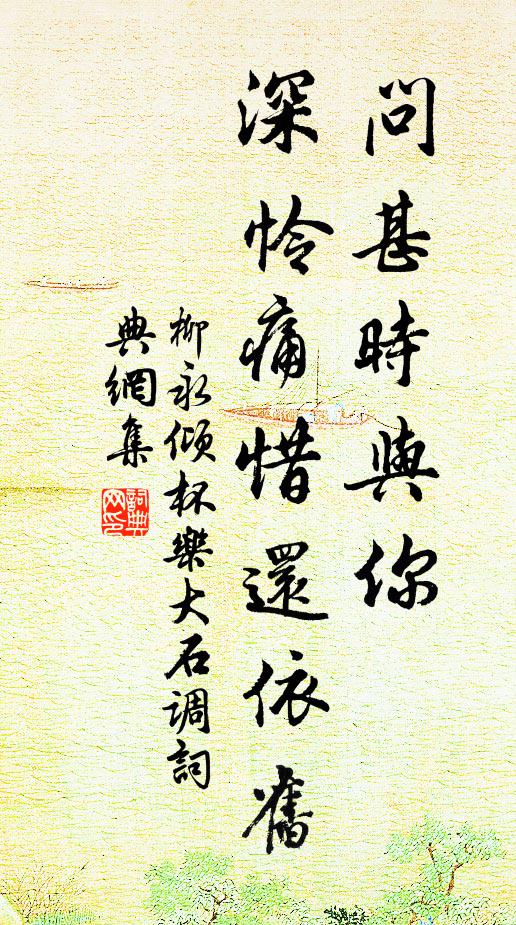 問甚時與你
深怜痛惜還依舊
柳永傾杯樂大石調詞
典網集
詞典
网印